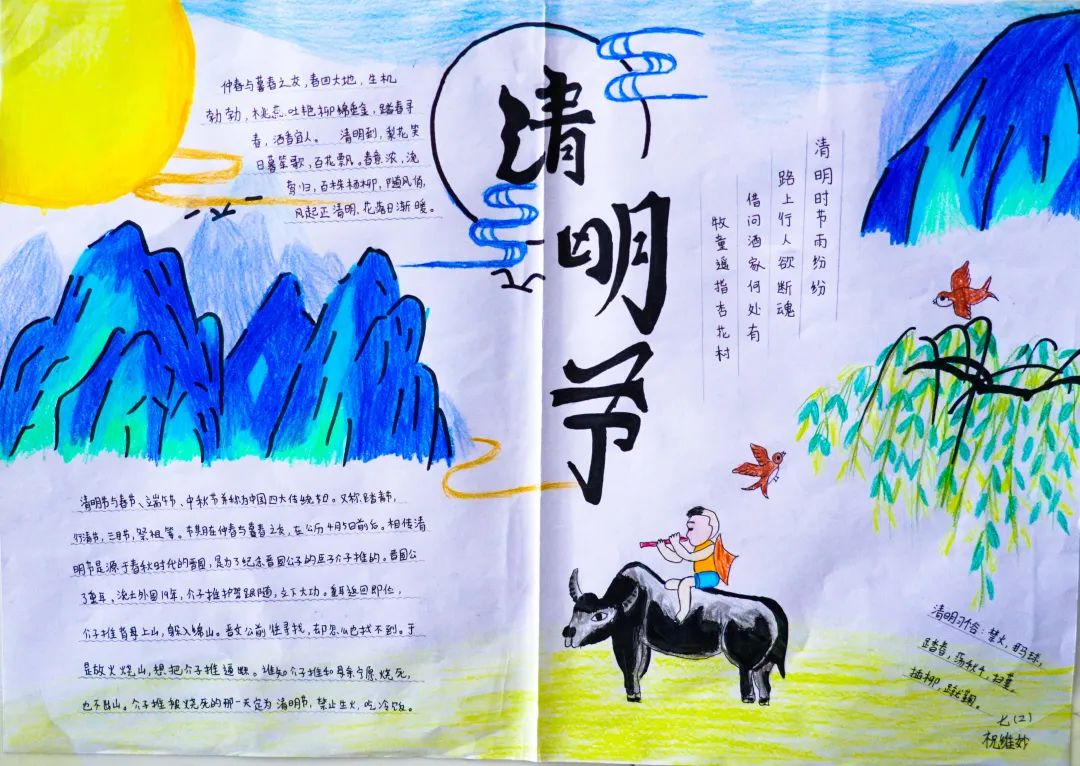 清明节
仲春与暮春之交，春回大地，生机
勃勃，桃蕊吐艳柳绵垂金，踏春寻
春，洒香宜人。清明到，梨花笑
日暮笙歌，百花飘。春意浓，浇
归，百株杨柳，随风俏，
风起正清明，花落日渐暖。
清明时节雨纷纷
路上行人欲断魂
借问酒家何处有
牧童遥指杏花村
清明节与春节、端午节、中秋节并称为中国四大传统节日。又称踏青节，
行清节，三月节，祭祖等。节期在仲春与暮春之交，在公历4月5日前后。相传清
明节是源于春秋时代的晋国，是为了纪念晋国公子的臣子介子推的。晋国公
子重耳，流亡外国19年，介子推护驾跟随，立下大功。重耳返回即位，
介子推背母上山，躲入绵山。晋文公前往寻找，却怎么也找不到。于
是放火烧山，想把介子推逼出。谁知介子推和母亲宁愿烧死，
也不出山。介子推被烧死的那一天定为清明节，禁止生火，吃冷饭。
清明习俗：禁火，马球，
踏春，荡秋千，扫墓。
插柳，蹴鞠。
七（2）
祝维妙